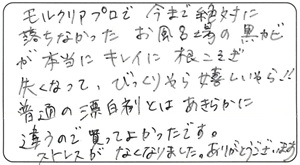 モルクリアプロで 今まで絶対に
落ちなかった お風呂場の黒カビ
が本当にキレイに 根こそぎ
失くなって、びっくりやら嬉しいやら!!
普通の漂白剤とは あきらかに
違うので買ってよかったです。
ストレスが なくなりました。ありがとうございます